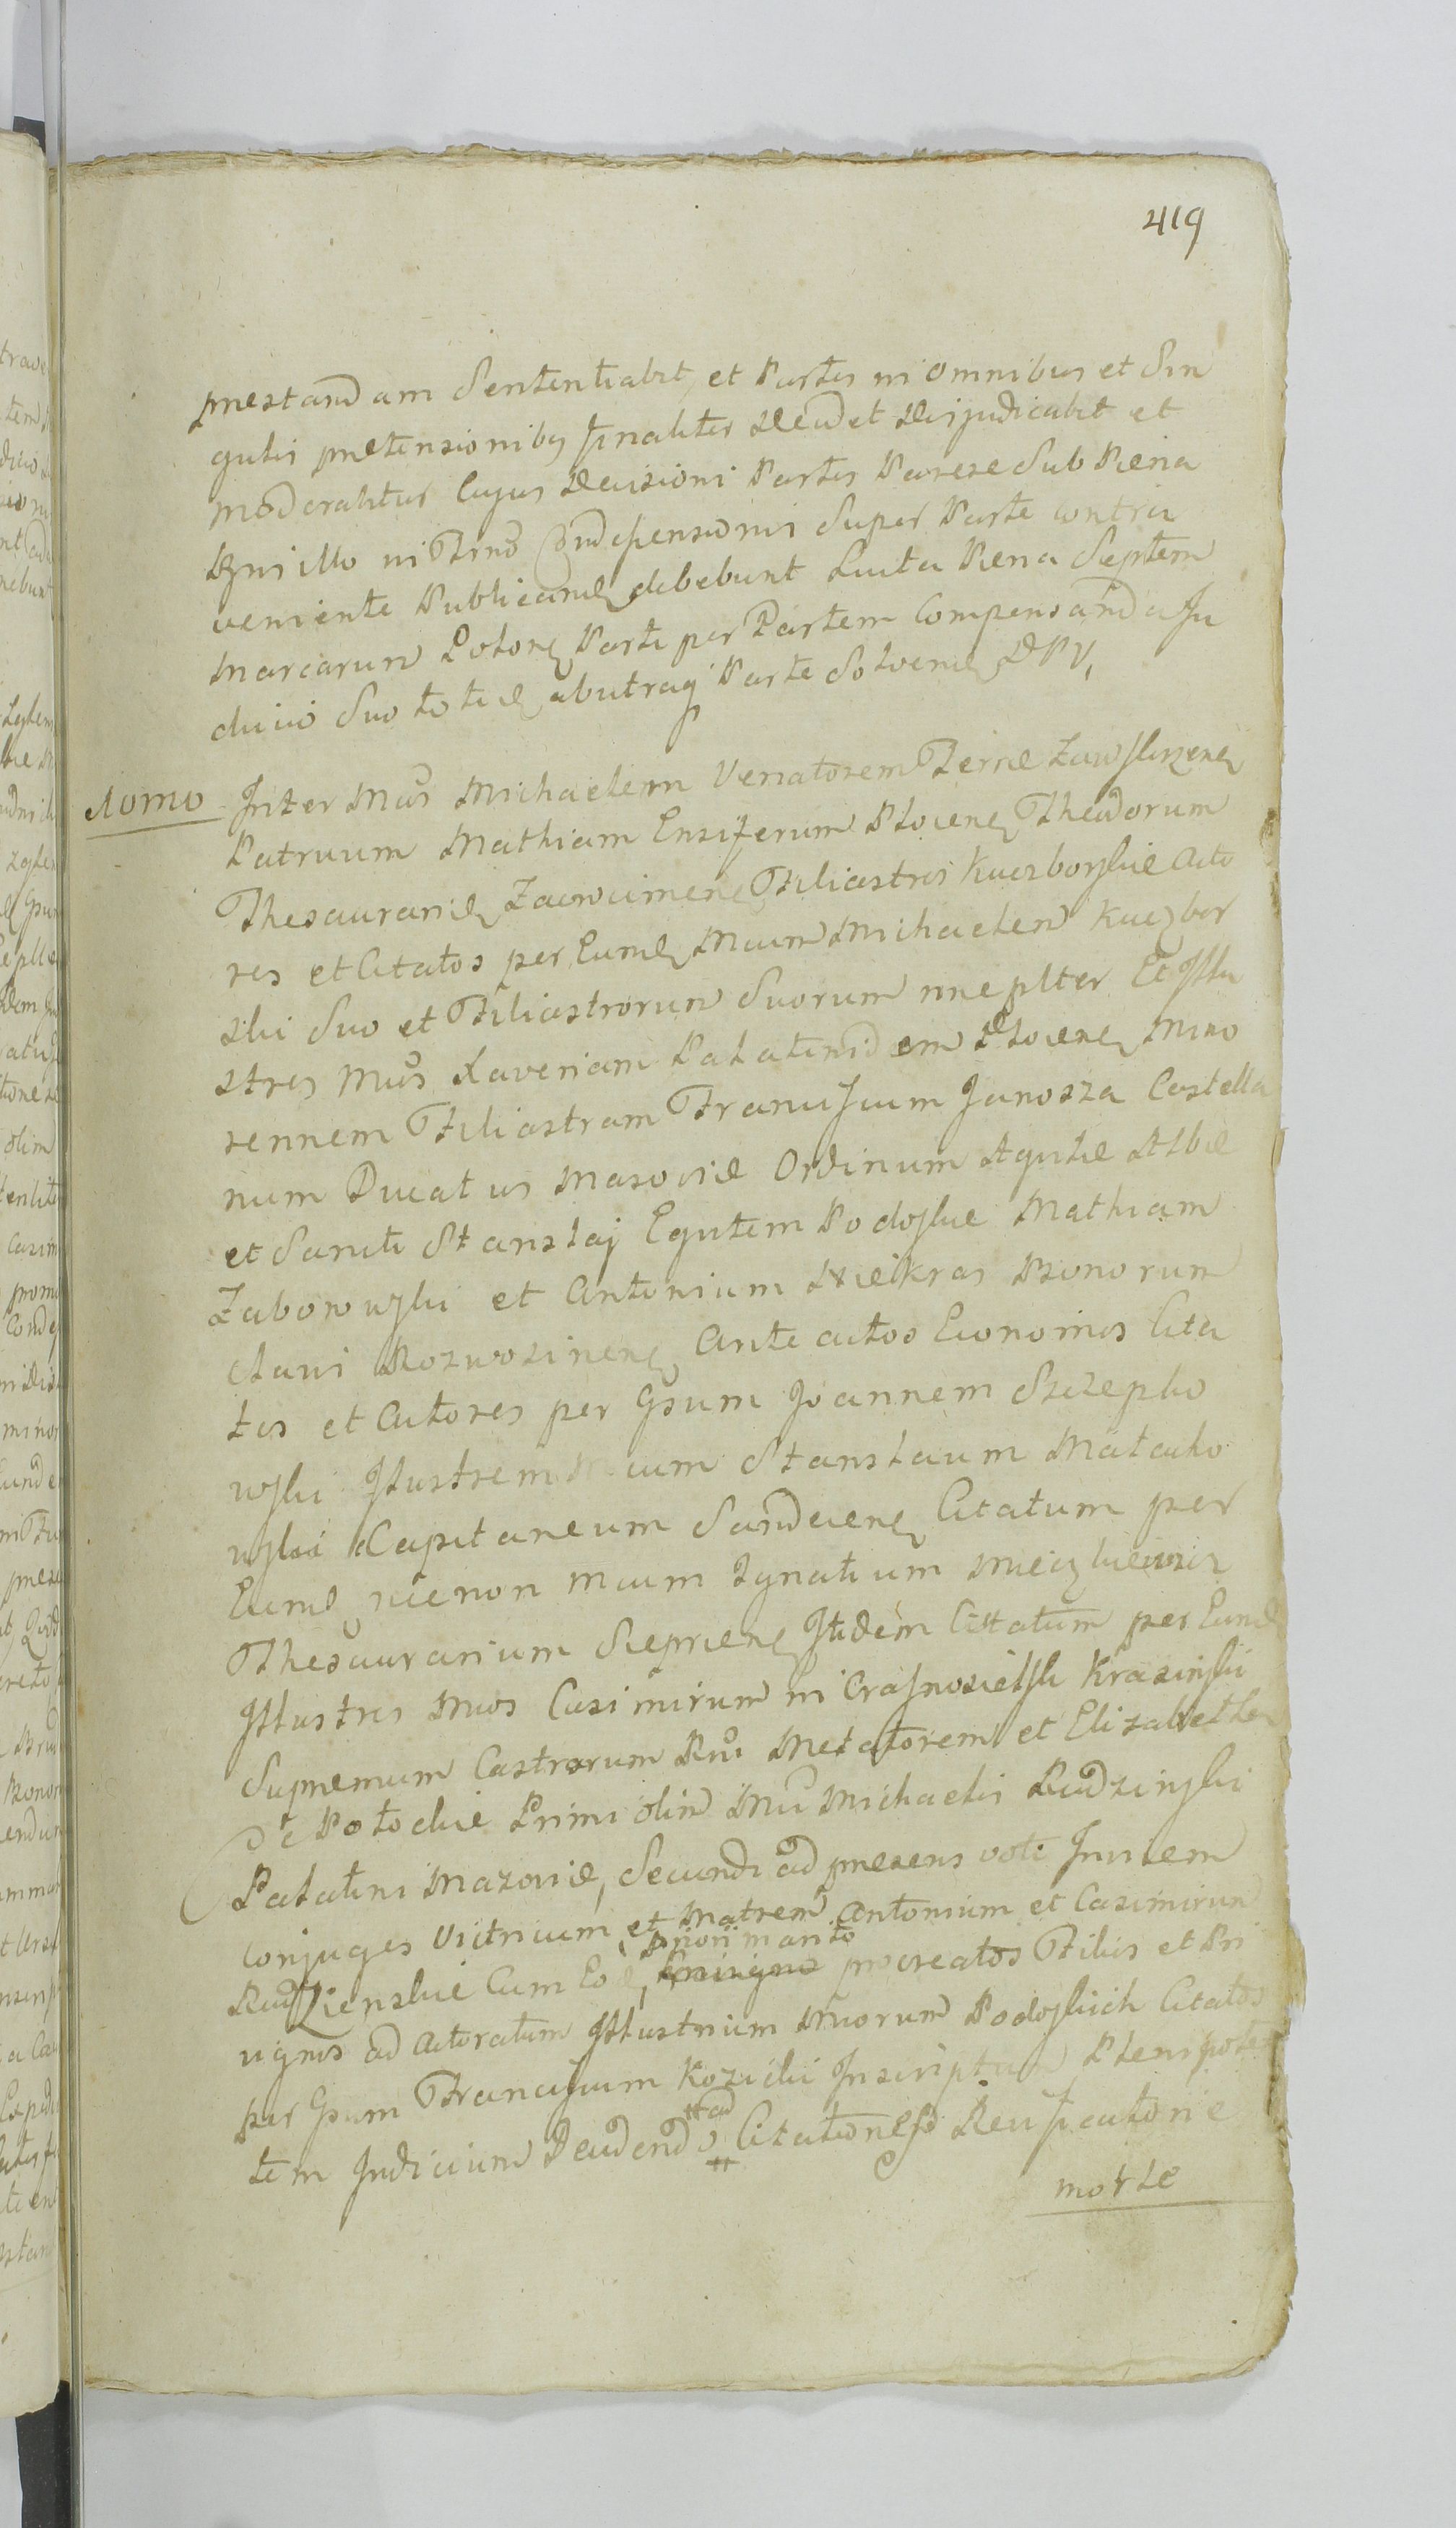 419
prestandam Sententiabit et Partes in omnibus et Sin
gulis prætensionibus finaliter decidet dijudicabit et
moderabitur Cujus decisioni Partes Parere Sub Pœna
Bnillo in Trno Condepensionis Super Parte contra
veniente Publicand debebunt Luita Pœna Septem
marcarum Polon Parti per Partem Compensanda Ju
dicio Suo toties ab utraq Parte Solvend DPV,
domo Inter Mcos Michaelem Venatorem Terræ Zawskrzen
Patruum Mathiam Ensiferum Plocen Theodorum
Thesaurarid Zawcimen Filiastros Kuczborskie Acto
res et Citatos per Eumd Mcum Michaelem Kuczbor
ski Suo et Filiastrorum Suorum nneplter Et Illu
stres Mcos Xaveriam Palatinidem Plocen Mino
rennem Filiastram Franciscum Junosza Castella
num Ducatus Masoviæ Ordinum Aquilæ Albæ
et Sancti Stanislaj Equitem Podoskie Mathiam
Zaborowski et Antonium Niekras Bonorum
Clavi Rozwozinen Ante actos Economos Cita
tos et Actores per Gsum Joannem Szczepko
wski Illustrem Mcum Stanislaum Małacho
wski Capitaneum Sandecen Citatum per
Eumd necnon Mcum Ignatium
Thesaurarium Sieprcen Itidem Citatum per Eumd
Illustres Mcos Casimirum in Crasnosielsk Krasinski
Supremum Castrorum Rni Metatorem et Elizabetham
de Potockie Primi olim Mci Michaelis Rudzinski
Palatini Mazoviæ, Secundi ad præsens voti Invicem
Conjuges Vitricum et Matrem Antonium et Casimirum
priori marito
Rudzienskie Cum Eod, procreatos Filios et Pri
vignos ad Actoratum Illustrium Mcorum Podoskich Citatos
per Gsum Franciscum Kozicki Inscriptum Plenipoten
ad
tem Judicium Decidendo Citationes Reusficatoriæ
morte